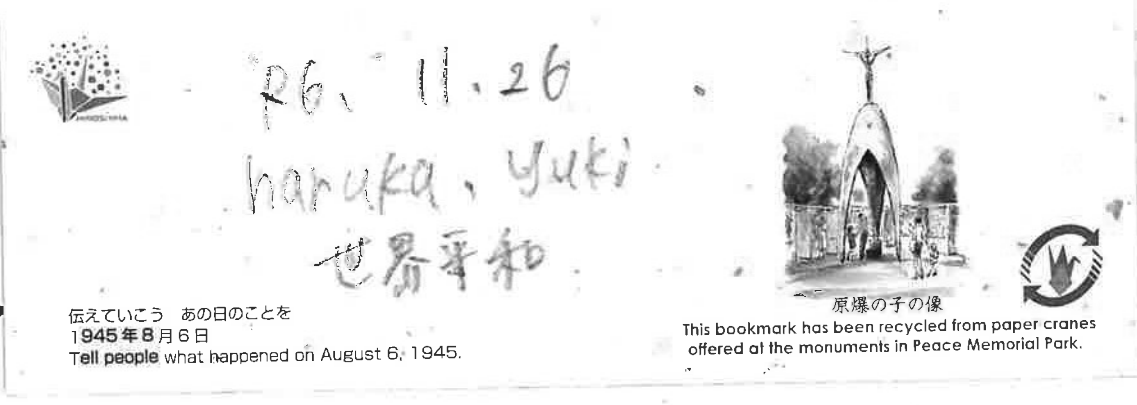 HIROSHIMA
R6、11.26
haruka、Yuki
世界平和
伝えていこう あの日のことを
1945年8月6日
Tell people what happened on August 6, 1945.
原爆の子の像
This bookmark has been recycled from paper cranes
offered at the monuments in Peace Memorial Park.